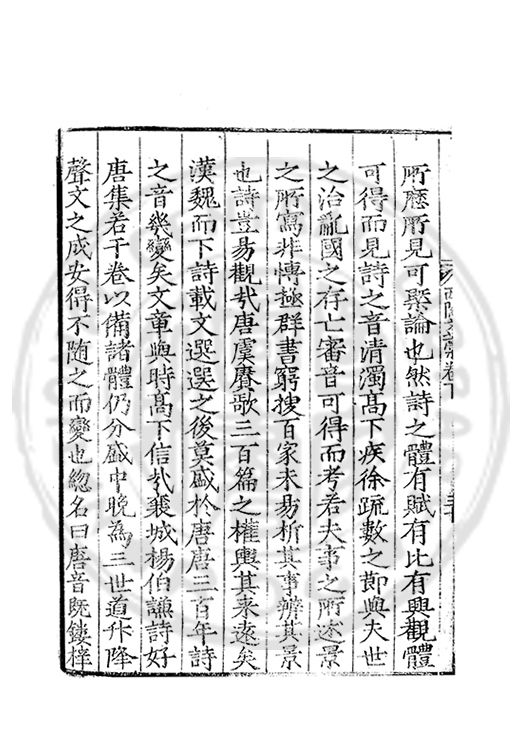 所歷所見可槩論也然詩之體有賦有比有興觀體
可得而見詩之音清濁髙下疾徐疏數之節與夫世
之治亂國之存亡審音可得而考若夫事之所述景
之所寫非愽極群書窮搜百家未昜析其事辨其景
也詩豈昜觀㢤唐虞賡歌三百篇之權輿其来逺矣
漢魏而下詩載文選選之後莫盛於唐唐三百年詩
之音㡬變矣文章與時髙下信㢤襄城楊伯謙詩好
唐集若干卷以備諸體仍分盛中晚為三世道升降
聲文之成安得不隨之而變也緫名曰唐音既鏤梓